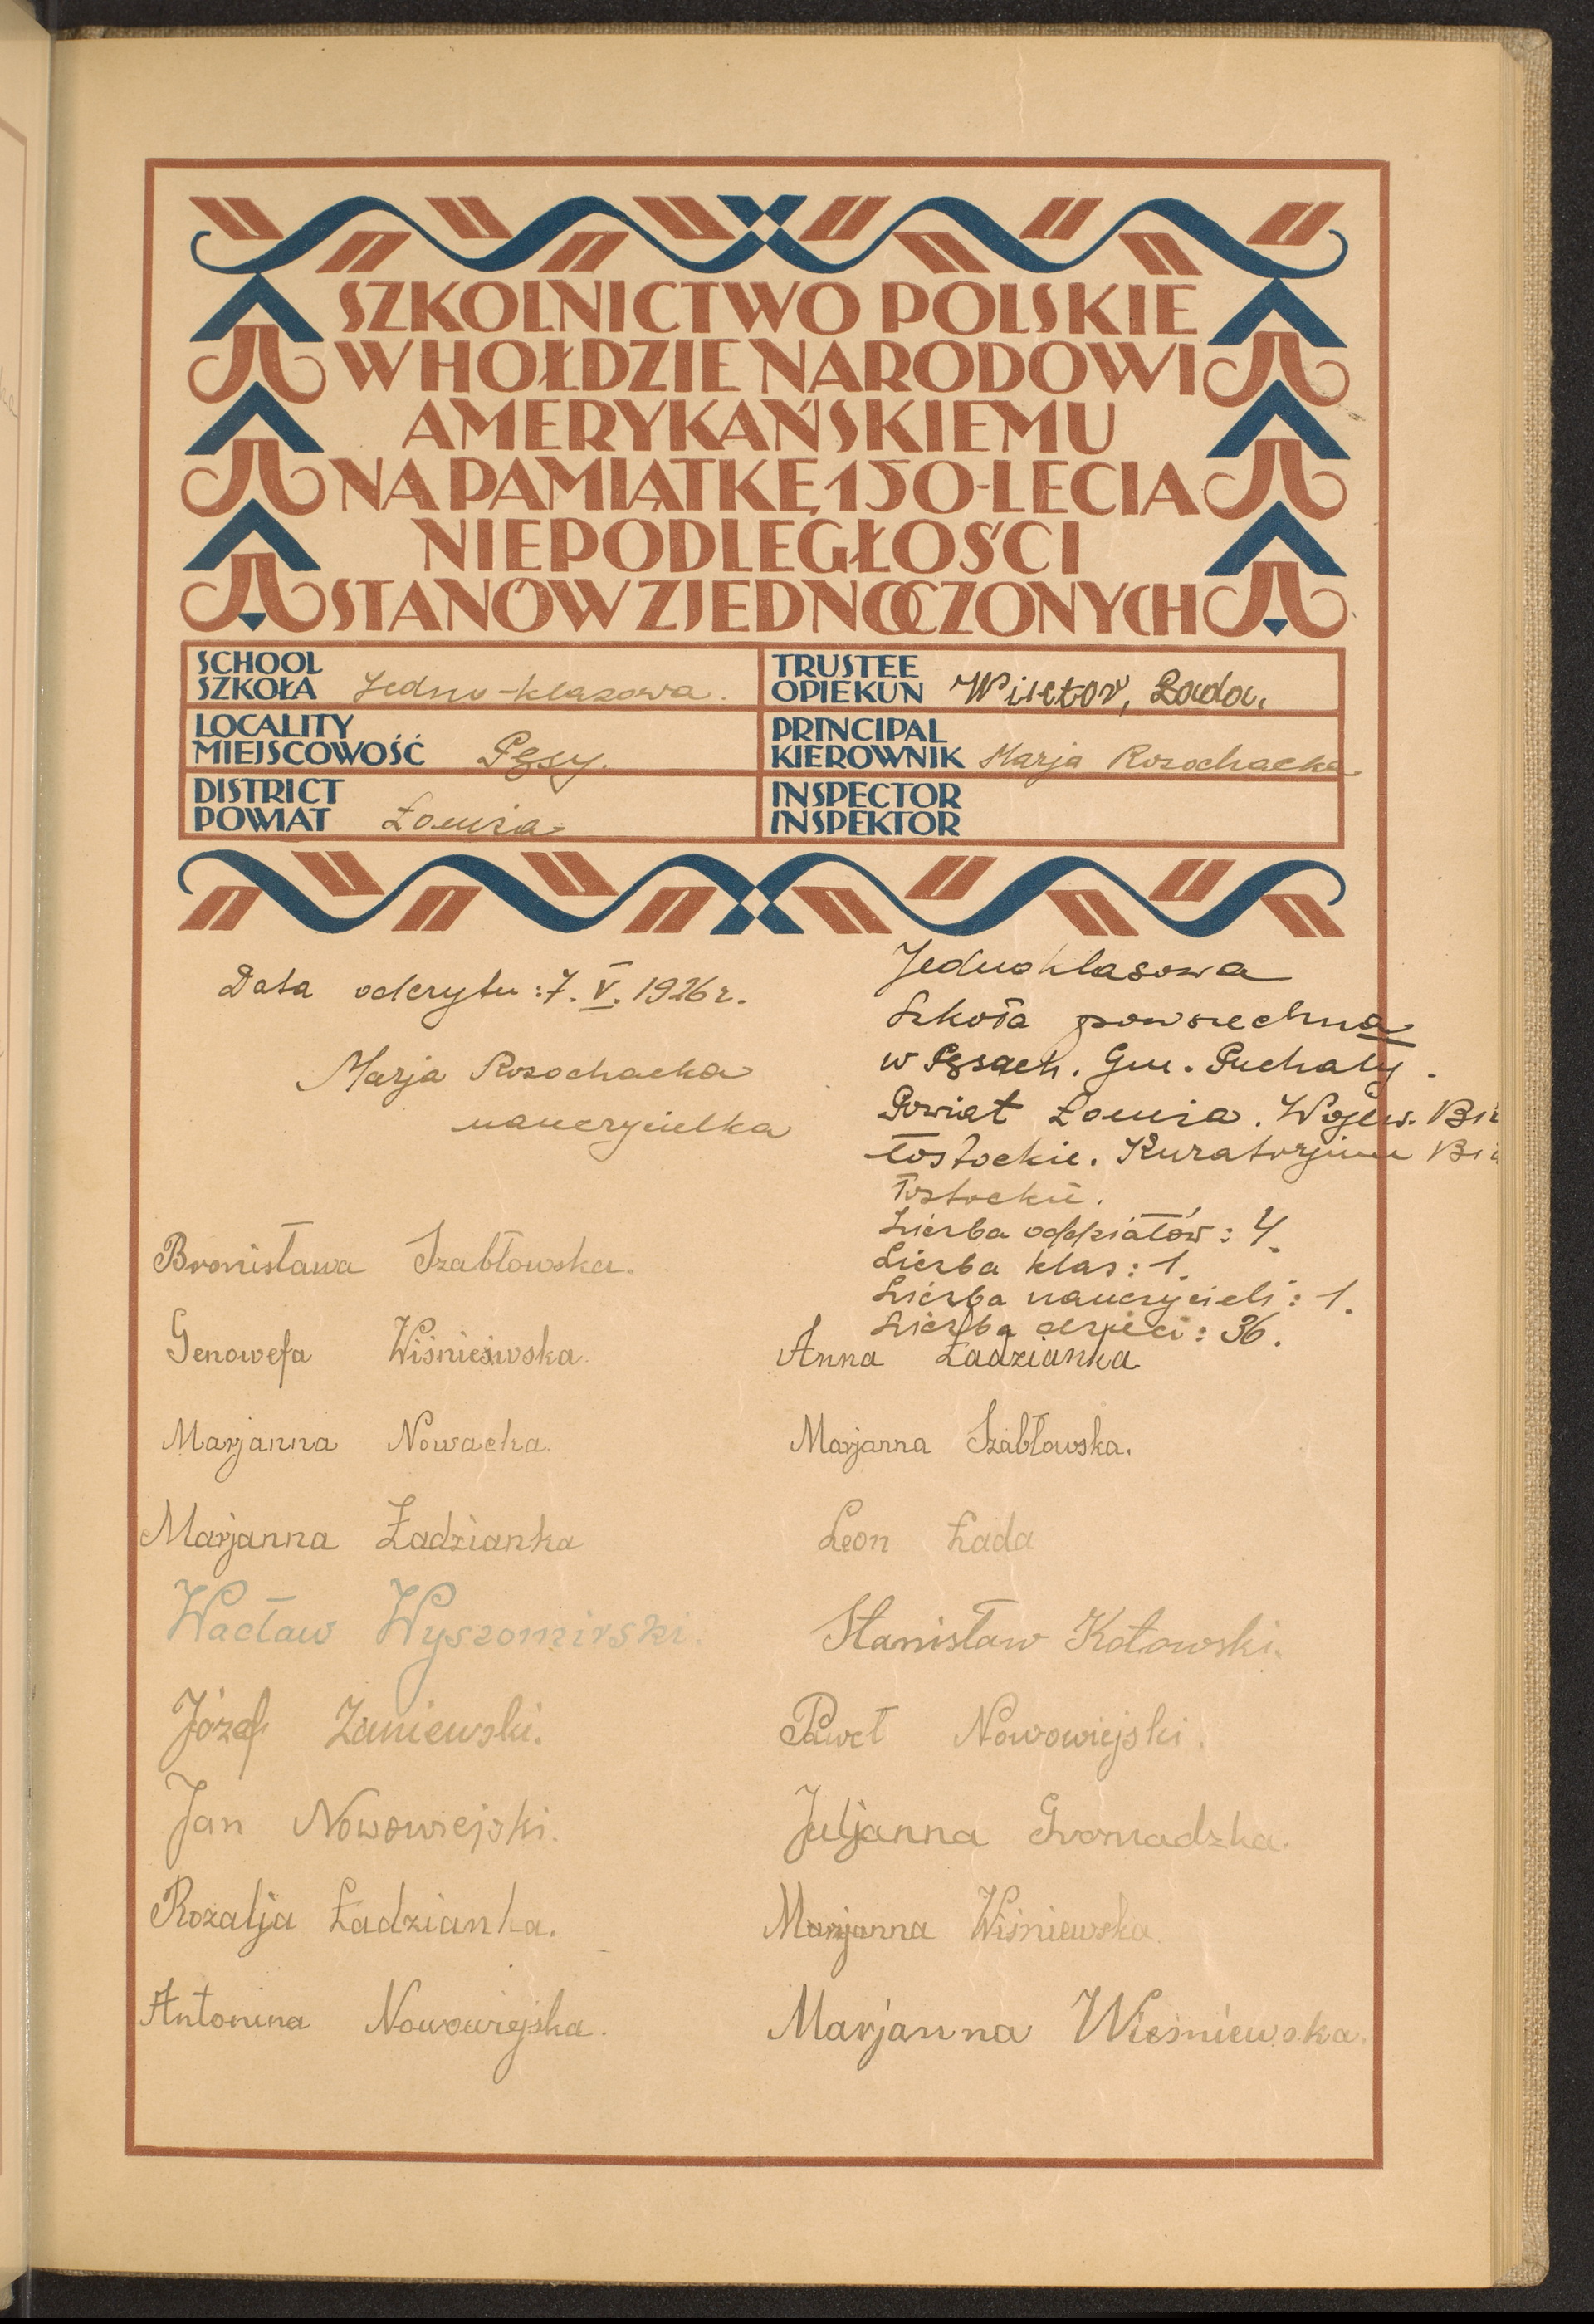 SZKOLNICTWO POLSKIE
W HOŁDZIE NARODOWI
AMERYKAŃSKIEMU
NA PAMIĄTKĘ 150-LECIA
NIEPODLEGŁOŚCI
STANÓW ZJEDNOCZONYCH
SCHOOL
SZKOŁA Jedno-klasowa.
TRUSTEE
OPIEKUN Wiktor, Łada.
LOCALITY
MIEJSCOWOŚĆ Pęsy.
PRINCIPAL
KIEROWNIK Marja Rosochacka
DISTRICT
POWIAT Łomża
INSPECTOR
INSPEKTOR
Data odczytu: 7. V. 1926 r.
Marja Rosochacka
nauczycielka
Jednoklasowa
Szkoła powszechna
w Pęsach. Gm. Puchały.
Powiat Łomża. Wojew. Bia
łostockie. Kuratorjum Bia
łostockie.
Liczba oddziałów: 4.
Liczba klas: 1.
Liczba nauczycieli: 1.
Liczba dzieci: 36.
Bronisława Szabłowska.
Genowefa Wiśniewska.
Marjanna Nowacka.
Marjanna Ładzianka
Wacław Wyszomirski.
Józef Zaniewski.
Jan Nowowiejski.
Rozalja Ładzianka.
Antonina Nowowiejska.
Anna Ładzianka
Marjanna Szabłowska.
Leon Łada
Stanisław Kotowski.
Paweł Nowowiejski.
Juljanna Gromadzka.
Marjanna Wiśniewska.
Marjanna Wieśniewska.